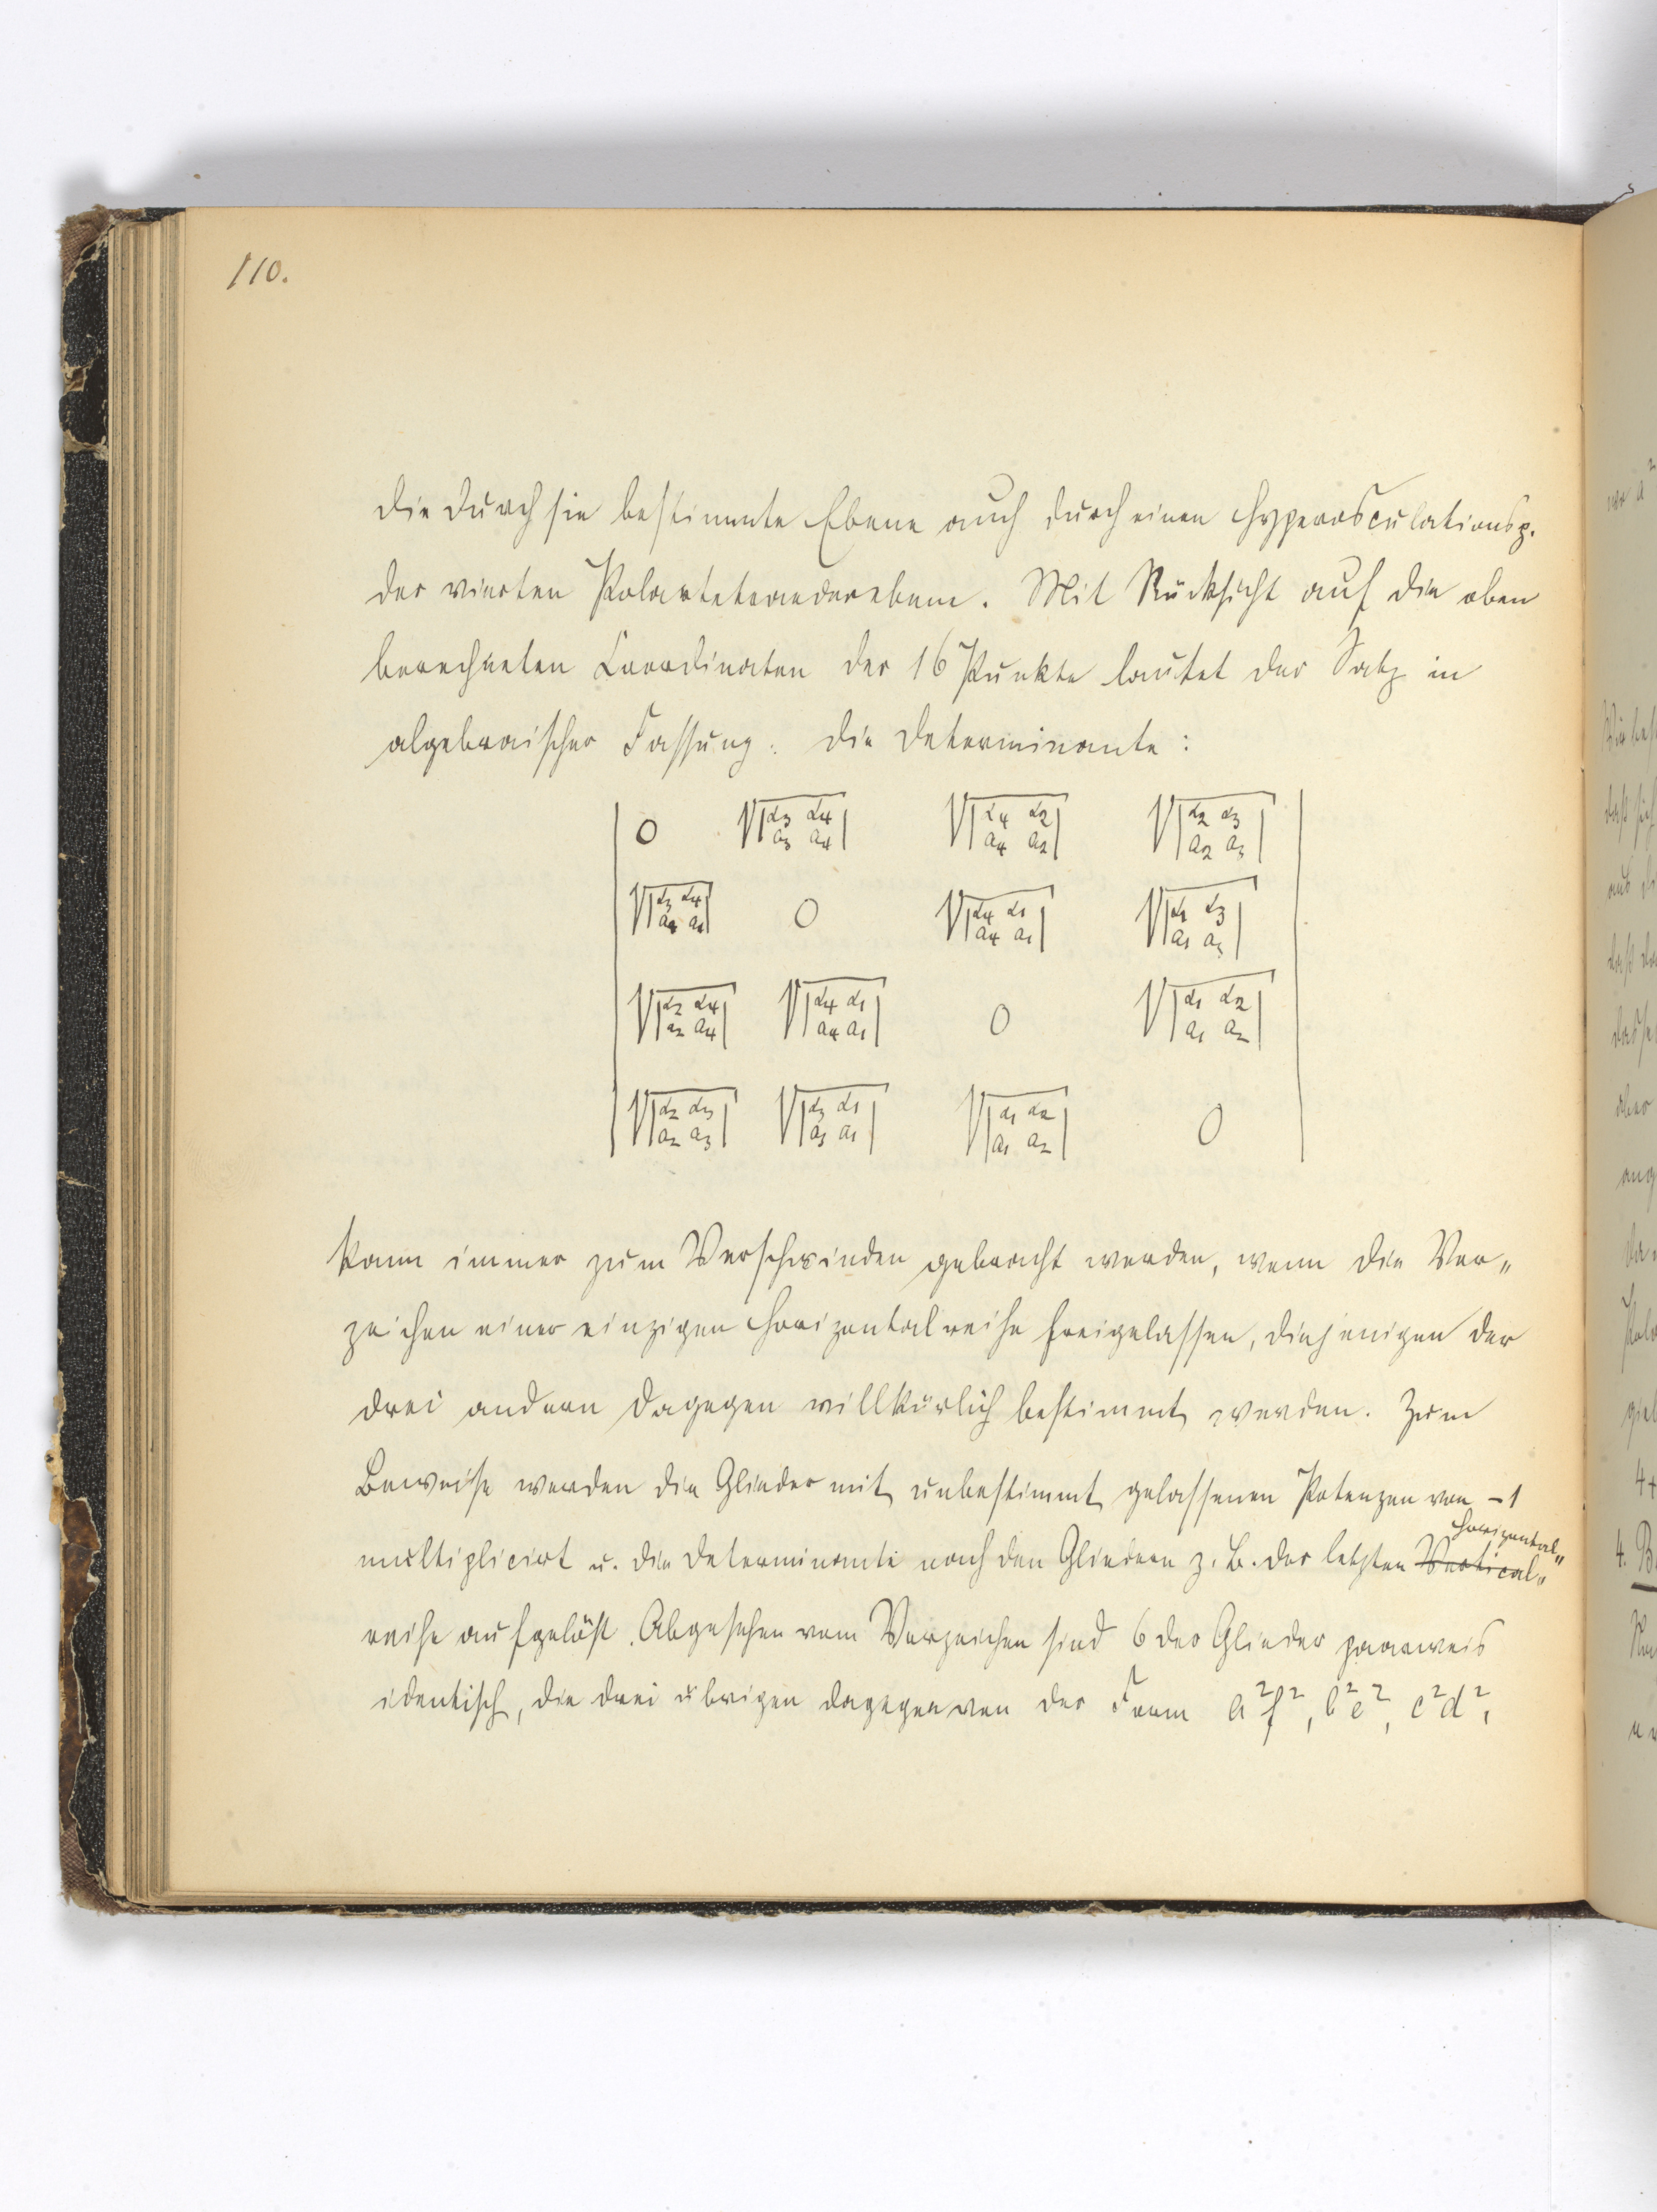 110.
die durch sie bestimmte Ebene auch durch einen Hyperosculationsp.
der vierten Polartetraederebene. Mit Rücksicht auf die oben
berechneten Coordinaten der 16 Punkte lautet der Satz in
algebraischer Fassung: die Determinante:
| 0 √|α3 α4 √|α4 α2| √|α2 α3| |
a3 a4| a4 a2| a2 a3|
√|α3 α4| 0 √|α4 α1| √|α1 α3|
a4 a1| a1 a3|
√|α2 α4| √|α4 α1| 0 √|α1 α2|
a2 a4| a4 a1| a1 a2|
√|α2 α3| √|α3 α1| √|α1 α2| 0
a2 a3| a3 a1| a1 a2|
kann immer zum Verschwinden gebracht werden, wenn die Vor„
zeichen einer einzigen Horizontalreihe freigelassen, diejenigen der
drei andern dagegen willkürlich bestimmt werden. Zum
Beweise werden die Glieder mit unbestimmt gelassenen Potenzen von -1
Horizontal„
multiplicirt u. die Determinante nach den Gliedern z. B. der letzten Vertical„
reihe aufgelöst. Abgesehen vom Vorzeichen sind 6 der Glieder paarweis
identisch, die drei übrigen dagegen von der Form a²f², b²e², c²d²,